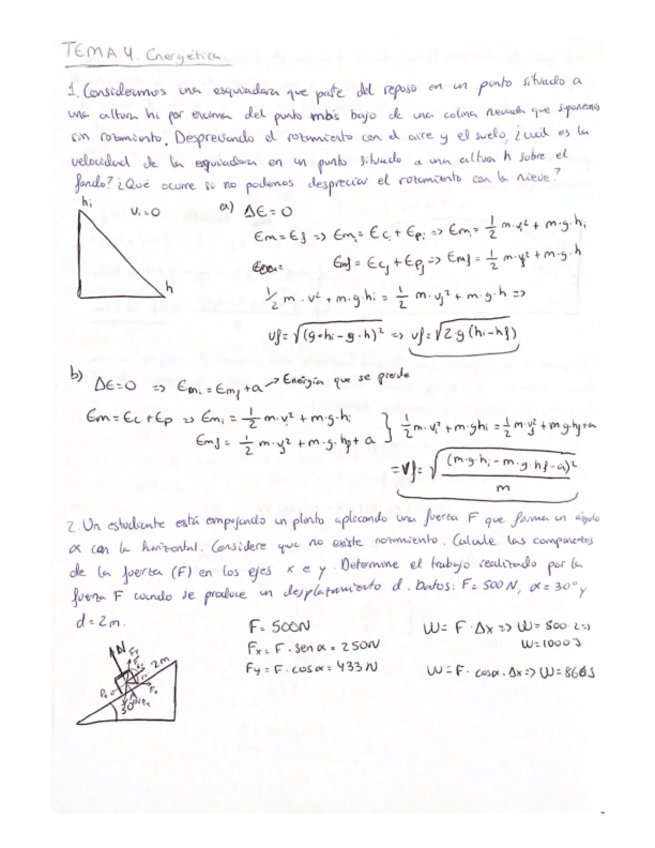 TEMA 4. Energética.
1. Consideramos una esquiadora que parte del reposo en un punto situado a
una altura hi por encima del punto más bajo de una colina nevada que suponemos
sin rozamiento. Despreciando el rozamiento con el aire y el suelo, ¿cuál es la
velocidad de la esquiadora en un punto situado a una altura h sobre el
fondo? ¿Qué ocurre si no podemos despreciar el rozamiento con la nieve?
hi Vi=0 a) ΔE=0
Em=Ef => Emi=Eci+Epi => Emi=1/2 m·vi²+m·g·hi
Emf=Ecf+Epf => Emf=1/2 m·vf²+m·g·h
h
1/2 m·v²+m·g·hi = 1/2 m·vf²+m·g·h =>
vf=√(g·hi-g·h)² => vf=√2·g(hi-hf)
b) ΔE=0 => Emi=Emf+a → Energía que se pierde
Em=Ec+Ep => Emi=1/2 m·vi²+m·g·hi
Emf=1/2 m·vf²+m·g·hf+a } 1/2 m·vi²+m·ghi=1/2 m·vf²+m·g·hf+a
=Vf=√(m·g·hi-m·g·hf-a)²/m
2. Un estudiante está empujando un plinto aplicando una fuerza F que forma un ángulo
α con la horizontal. Considere que no existe rozamiento. Calcule las componentes
de la fuerza (F) en los ejes x e y. Determine el trabajo realizado por la
fuerza F cuando se produce un desplazamiento d. Datos: F=500N, α=30° y
d=2m.
F=500N
Fx=F·senα=250N
Fy=F·cosα=433N
W=F·Δx => W=500·2=>
W=1000J
W=F·cosα·Δx => W=866J
N Fy 2m
Px Fx
30°